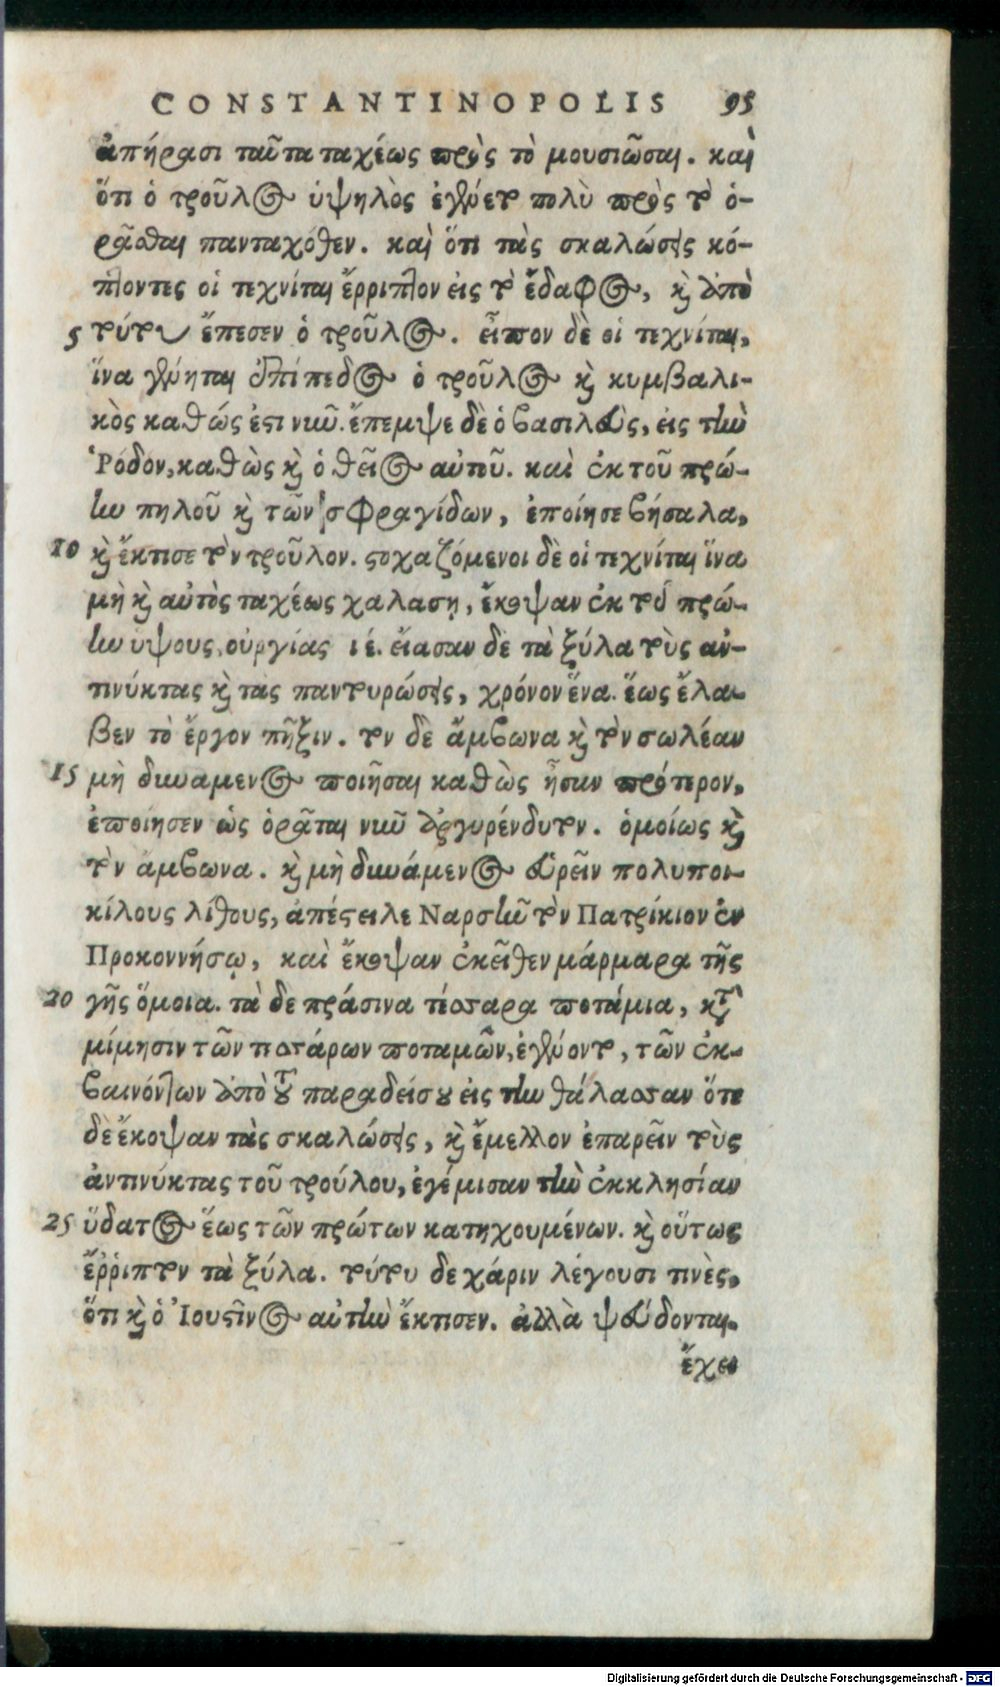 CONSTANTINOPOLIS 95
ἀπήρασι ταῦτα ταχέως πρὸς τὸ μουσιῶσαι. καὶ
ὅτι ὁ τροῦλος ὑψηλὸς ἐγένετο πολὺ πρὸς τὸ ὁ-
ρᾶσθαι πανταχόθεν. καὶ ὅτι τὰς σκαλώσεις κό-
πτοντες οἱ τεχνίται ἔρριπτον εἰς τὸ ἔδαφος, καὶ ἀπὸ
5 τούτου ἔπεσεν ὁ τροῦλος. εἶπον δὲ οἱ τεχνίται,
ἵνα γένηται ἐπίπεδος ὁ τροῦλος καὶ κυμβαλι-
κὸς καθώς ἐστι νῦν. ἔπεμψε δὲ ὁ βασιλεὺς, εἰς τὴν
Ῥόδον, καθὼς καὶ ὁ θεῖος αὐτοῦ. καὶ ἐκ τοῦ πρώ-
ην πηλοῦ καὶ τῶν σφραγίδων, ἐποίησε βήσαλα,
10 καὶ ἔκτισε τὸν τροῦλον. στοχαζόμενοι δὲ οἱ τεχνίται ἵνα
μὴ καὶ αὐτὸς ταχέως χαλάσῃ, ἔκοψαν ἐκ τοῦ πρώ-
ην ὑψους, οὐργίας ιέ. εἴασαν δὲ τὰ ξύλα τοὺς ἀν-
τινύκτας καὶ τας παντυρώσεις, χρόνον ἕνα. ἕως ἔλα-
βεν τὸ ἔργον πῆξιν. τον δὲ ἄμβωνα καὶ τὸν σωλέαν
15 μὴ δυναμενος ποιῆσαι καθὼς ἦσαν πρότερον,
ἐποίησεν ὡς ὁρᾶται νῦν ἀργυρένδυτον. ὁμοίως καὶ
τὸν ἀμβωνα. καὶ μὴ δυνάμενος εὑρεῖν πολυποι-
κίλους λίθους, ἀπέστειλε Ναρσῆν τὸν Πατρίκιον ἐν
Προκοννήσῳ, καὶ ἔκοψαν ἐκεῖθεν μάρμαρα τῆς
20 γῆς ὅμοια. τὰ δε πράσινα τέσσαρα ποτάμια, κατὰ
μίμησιν τῶν τεσσάρων ποταμῶν, ἐγένοντο, τῶν ἐκ-
βαινόντων ἀπὸ τοῦ παραδείσου εἰς τὴν θάλασσαν ὅτε
δὲ ἔκοψαν τὰς σκαλώσεις, καὶ ἔμελλον ἐπαρεῖν τοὺς
ἀντινύκτας τοῦ τρούλου, ἐγέμισαν τὴν ἐκκλησίαν
25 ὕδατος ἕως τῶν πρώτων κατηχουμένων. καὶ οὕτως
ἔῤῥιπτον τὰ ξύλα. τούτου δε χάριν λέγουσι τινὲς,
ὅτι καὶ ὁ Ἰουστῖνος αὐτὴν ἔκτισεν. ἀλλὰ ψεύδονται.
ἔχει
Digitalisierung gefördert durch die Deutsche Forschungsgemeinschaft - DFG